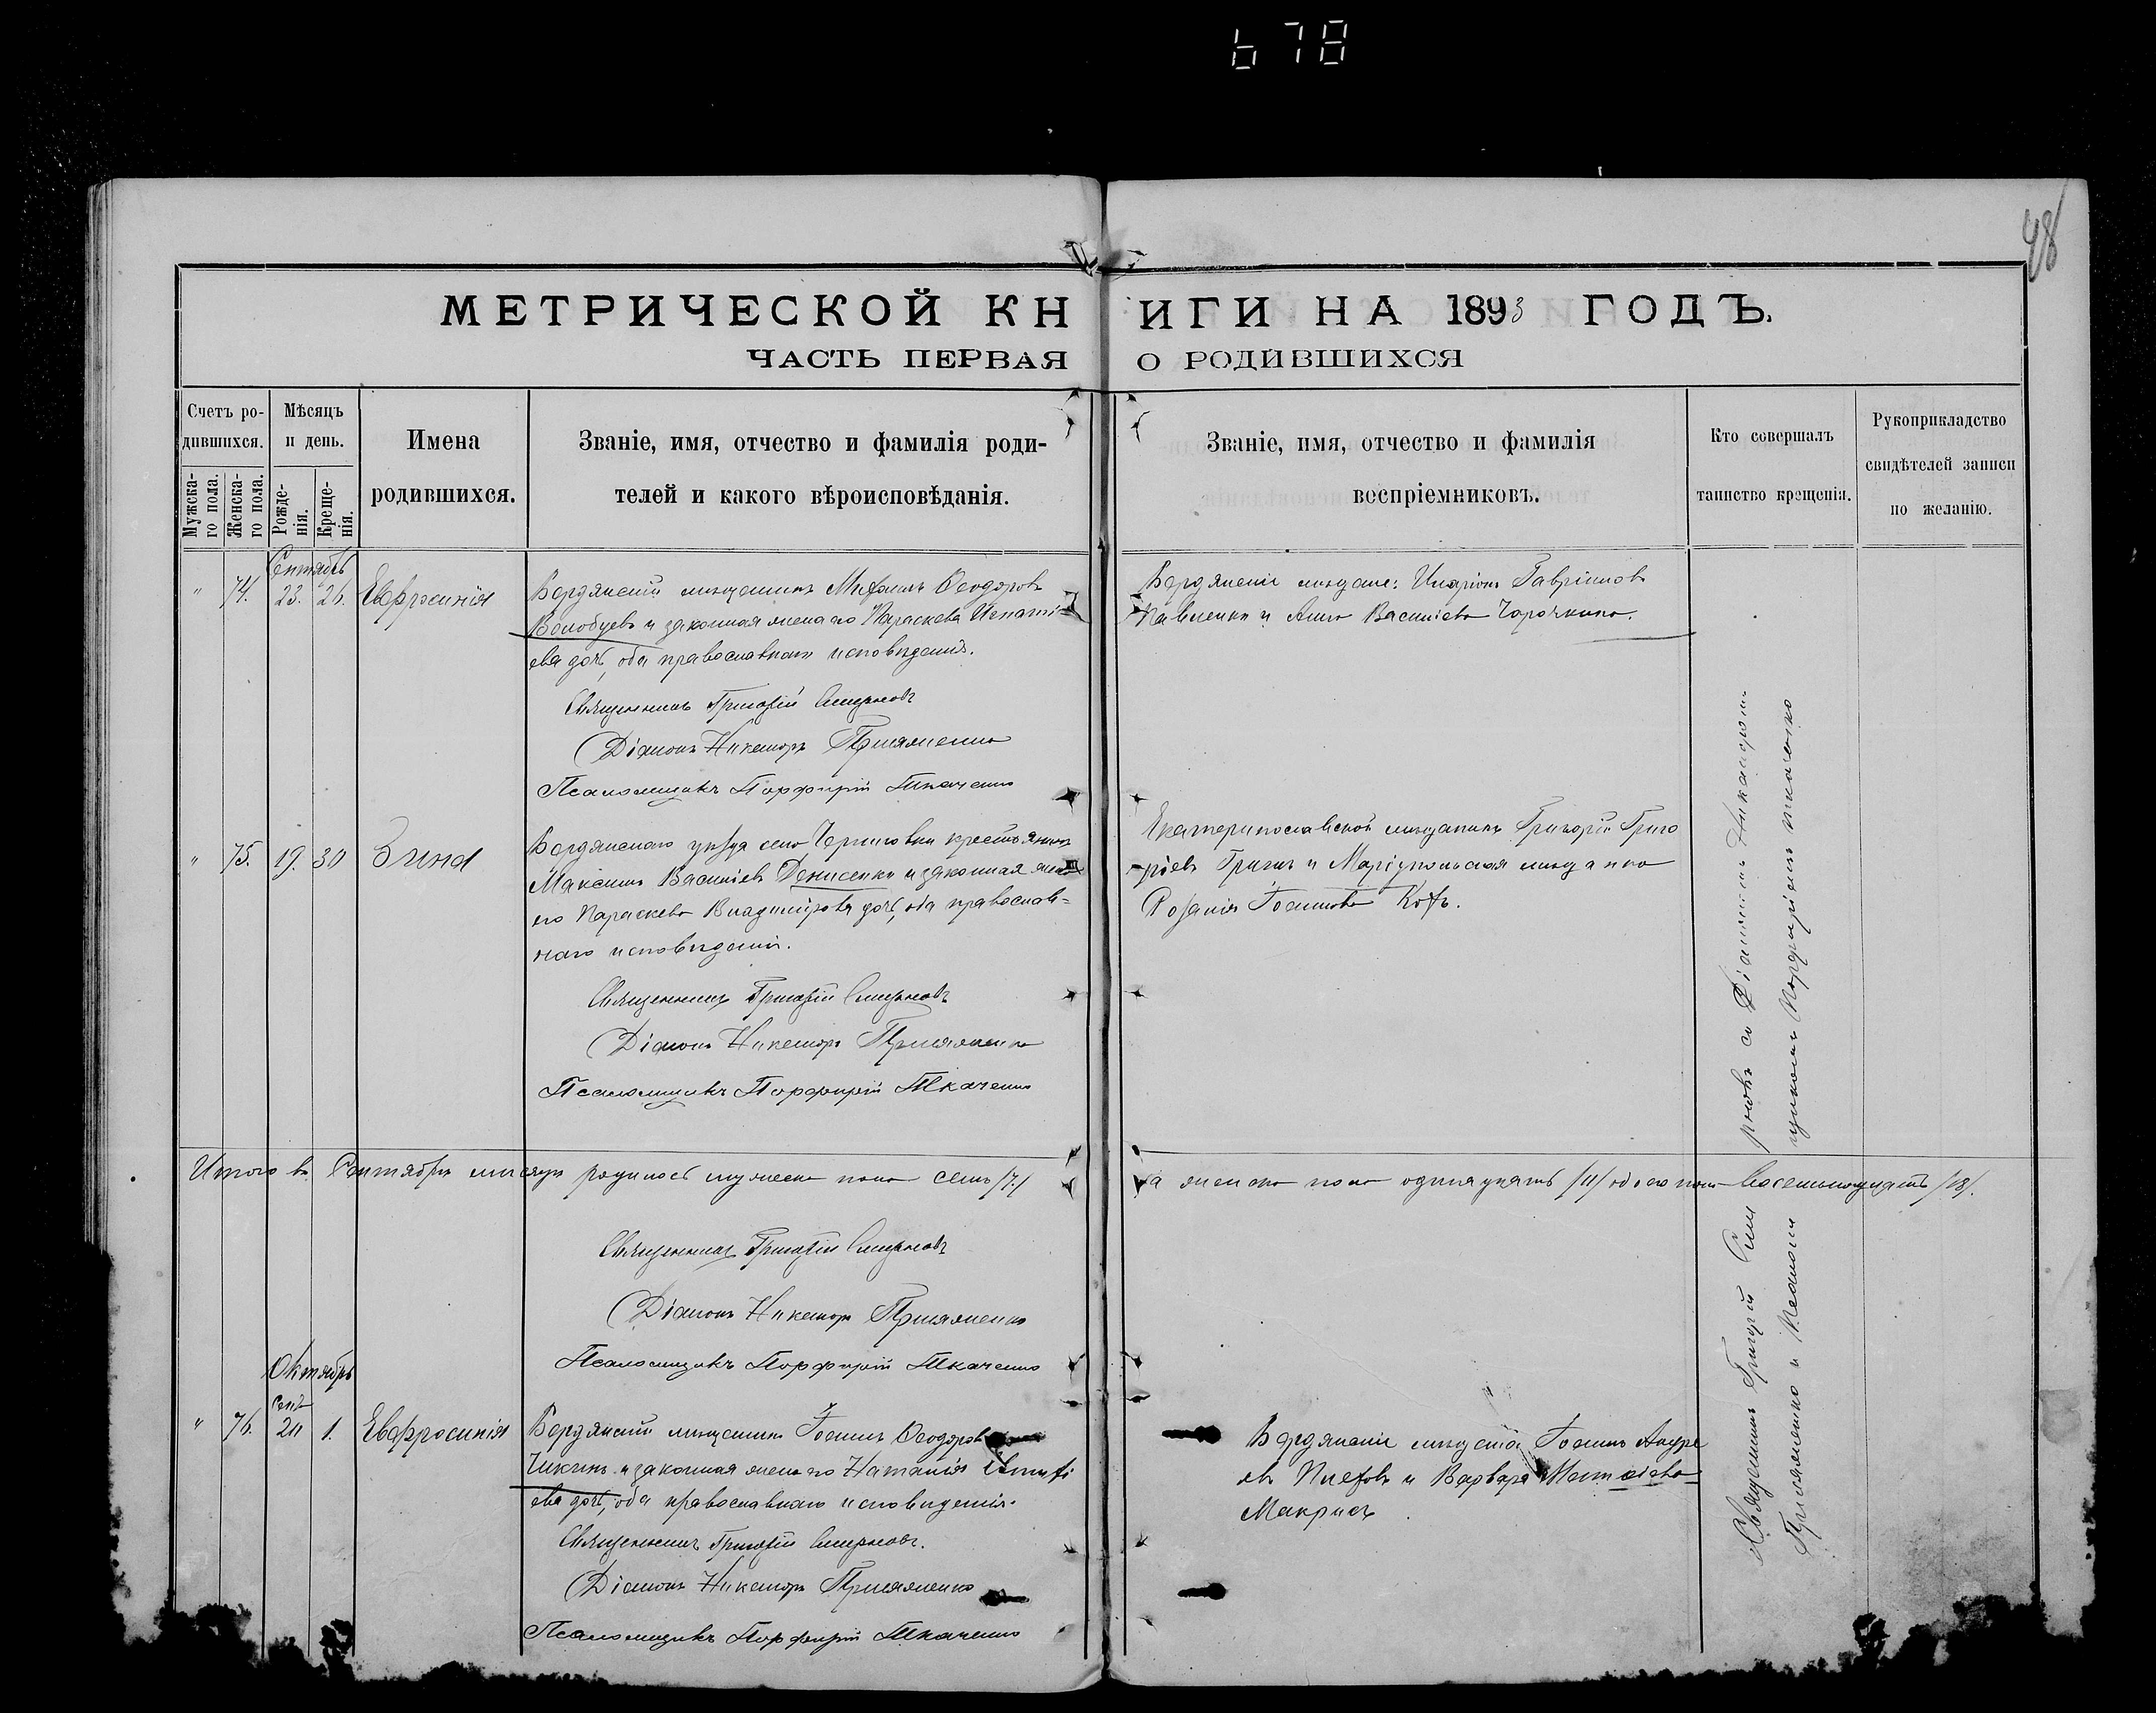 678
48
МЕТРИЧЕСКОЙ КНИГИ НА 1893 ГОДЪ.
ЧАСТЬ ПЕРВАЯ О РОДИВШИХСЯ
Счетъ ро-
дившихся.
Мужска-
го пола.
Женска-
го пола.
Мѣсяцъ
и день.
Рожде-
нія.
Креще-
нія.
Имена
родившихся.
Званіе, имя, отчество и фамилія роди-
телей и какого вѣроисповѣданія.
Званіе, имя, отчество и фамилія
воспріемниковъ.
Кто совершалъ
таинство крещенія.
Рукоприкладство
свидѣтелей записи
по желанію.
Сентябрь
" 74. 23. 26. Евфросинія
Бердянскій мѣщанинъ Михаилъ Ѳеодоровъ
Волобуевъ и законная жена его Параскева Игнаті-
ева дочь, оба православнаго исповѣданія.
Священникъ Григорій Смирновъ
Діаконъ Никаноръ Присяженко
Псаломщикъ Порфирій Ткаченко
Бердянскіе мѣщане: Иларіонъ Гавріиловъ
Павленко и Анна Васильева
" 75. 19. 30 Зина
Бердянскаго уѣзда села Черниговки крестьянинъ
Максимъ Васильевъ Денисенко и законная жена
его Параскева Владимірова дочь, оба православ-
наго исповѣданія.
Священникъ Григорій Смирновъ
Діаконъ Никаноръ Присяженко
Псаломщикъ Порфирій Ткаченко
Екатеринославскій мѣщанинъ Григорій Григо
-ріевъ и Маріупольская мѣщанка
Розалія Іоаннова
Итого въ Сентябрѣ мѣсяцѣ родилось мужска пола семь /7/
а женска пола одинадцать /11/ обоего пола восемьнадцать /18/.
Священникъ Григорій Смирновъ
Діаконъ Никаноръ Присяженко
Псаломщикъ Порфирій Ткаченко
Октябрь
Сент
" 76. 20 1. Евфросинія
Бердянскій мѣщанинъ Іоаннъ Ѳеодоровъ
Чикинъ и законная жена его Наталія
ева дочь, оба православнаго исповѣданія.
Священникъ Григорій Смирновъ.
Діаконъ Никаноръ Присяженко
Псаломщикъ Порфирій Ткаченко
Бердянскіе мѣщане Іоаннъ Андре
евъ и Варвара Матѳіева
Макрида
Священникъ Григорій Смирновъ съ Діакономъ Никаноромъ
Присяженко и Псаломщикомъ Порфиріемъ Ткаченко